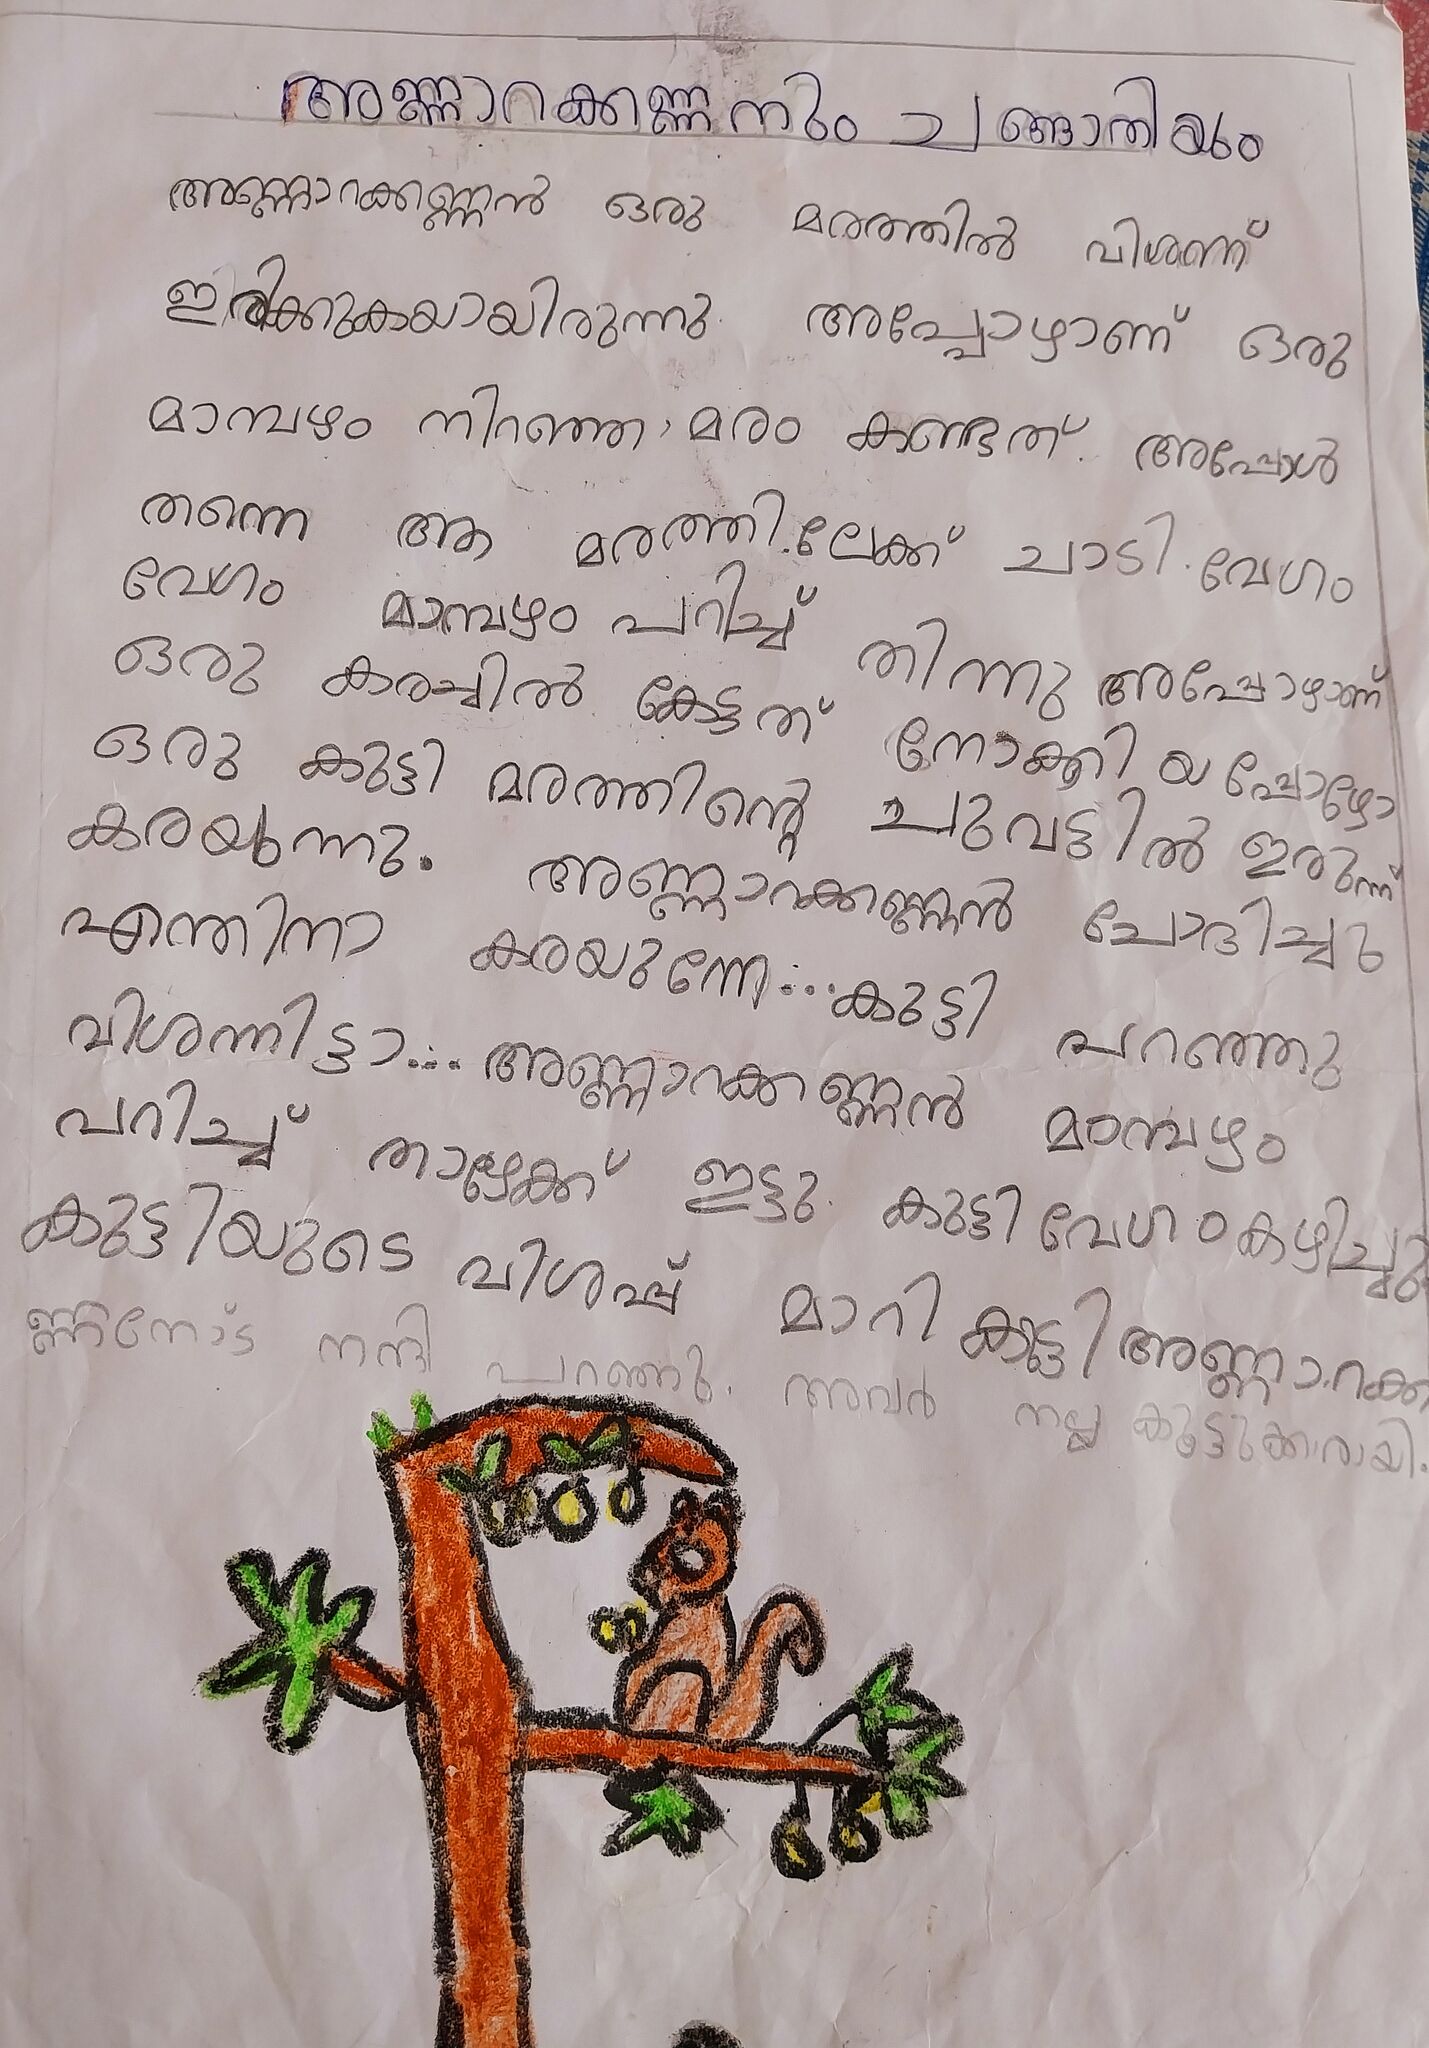 അണ്ണാറക്കണ്ണനും ചങ്ങാതിയും
അണ്ണാറക്കണ്ണൻ ഒരു മരത്തിൽ വിശന്ന്
ഇരിക്കുകയായിരുന്നു. അപ്പോഴാണ് ഒരു
മാമ്പഴം നിറഞ്ഞ മരം കണ്ടത്. അപ്പോൾ
തന്നെ ആ മരത്തിലേക്ക് ചാടി. വേഗം
വേഗം മാമ്പഴം പറിച്ച് തിന്നു അപ്പോഴാണ്
ഒരു കരച്ചിൽ കേട്ടത് നോക്കിയപ്പോഴോ
ഒരു കുട്ടി മരത്തിന്റെ ചുവട്ടിൽ ഇരുന്ന്
കരയുന്നു. അണ്ണാറക്കണ്ണൻ ചോദിച്ചു
എന്തിനാ കരയുന്നേ... കുട്ടി പറഞ്ഞു
വിശന്നിട്ടാ... അണ്ണാറക്കണ്ണൻ മാമ്പഴം
പറിച്ച് താഴേക്ക് ഇട്ടു. കുട്ടി വേഗം കഴിച്ചു
കുട്ടിയുടെ വിശപ്പ് മാറി കുട്ടി അണ്ണാറക്ക
ണ്ണനോട് നന്ദി പറഞ്ഞു. അവർ നല്ല കൂട്ടുക്കാരായി.